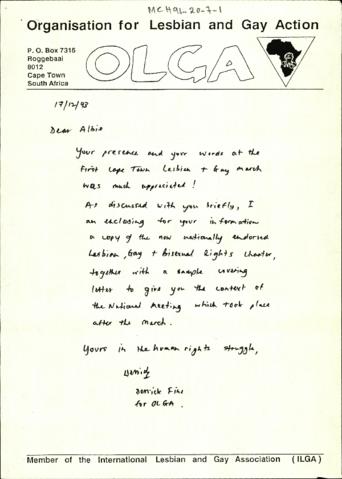 MCH91-20-7-1
Organisation for Lesbian and Gay Action
P. O. Box 7315
Roggebaai
8012
Cape Town
South Africa
OLGA
17/12/93
Dear Albie
Your presence and your words at the
first Cape Town Lesbian + Gay march
was much appreciated!
As discussed with you briefly, I
am enclosing for your information
a copy of the now nationally endorsed
Lesbian, Gay + Bisexual Rights Charter,
together with a sample covering
letter to give you the context of
the National Meeting which took place
after the march.
Yours in the human rights struggle,
Derrick Fine
for OLGA.
Member of the International Lesbian and Gay Association (ILGA)